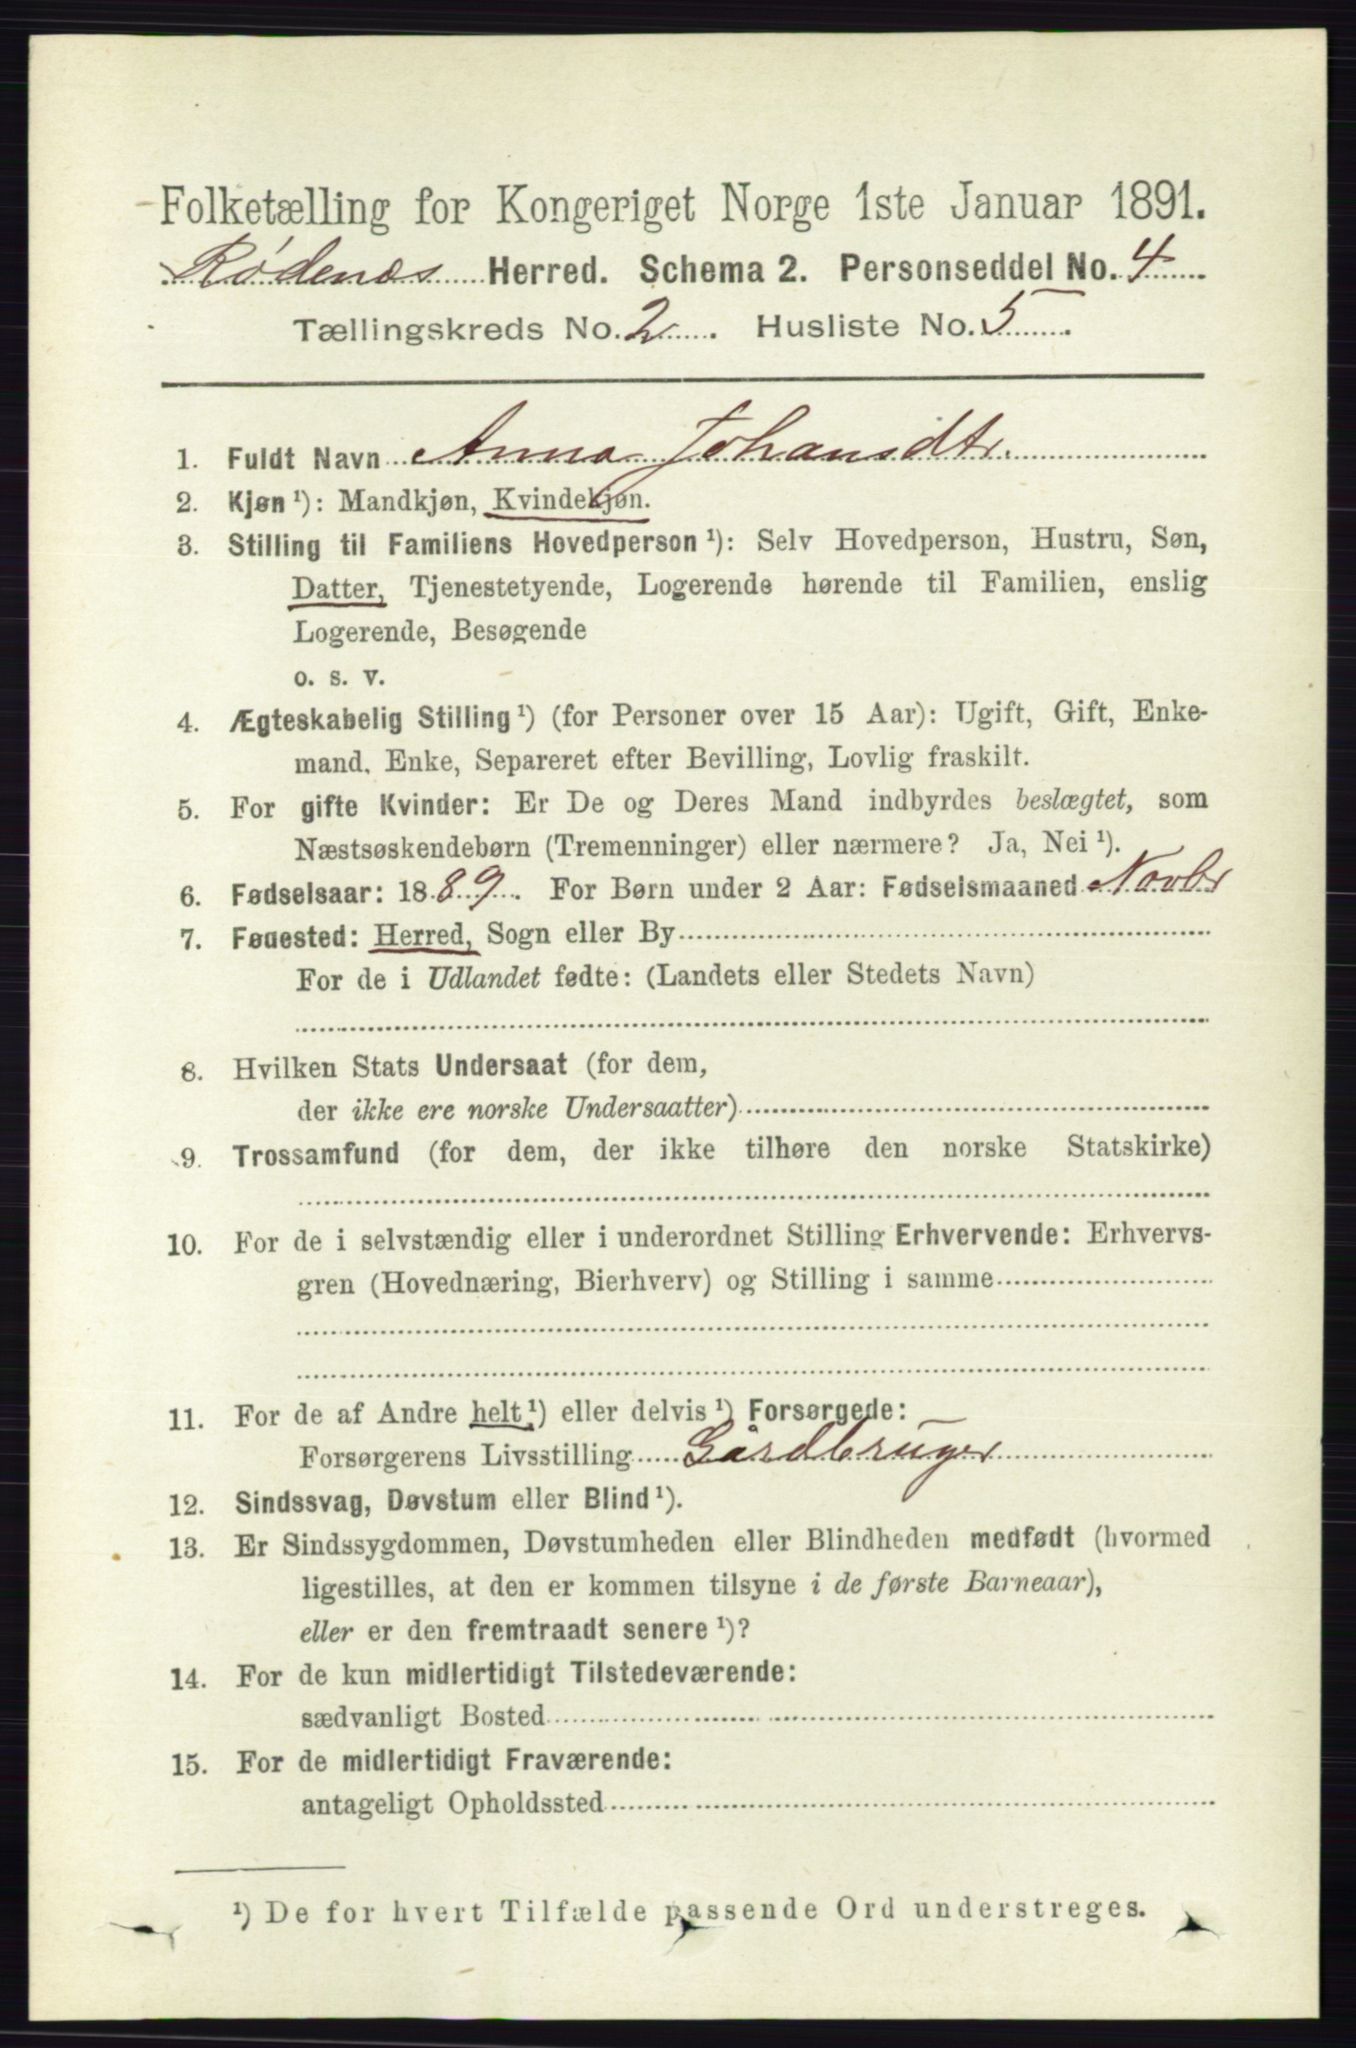 Folketælling for Kongeriget Norge 1ste Januar 1891.
Rødenæs Herred. Schema 2. Personseddel No. 4
Tællingskreds No. 2. Husliste No. 5.
1. Fuldt Navn Anna Johansdtr.
2. Kjøn ¹): Mandkjøn, Kvindekjøn.
3. Stilling til Familiens Hovedperson ¹): Selv Hovedperson, Hustru, Søn,
Datter, Tjenestetyende, Logerende hørende til Familien, enslig
Logerende, Besøgende
o. s. v.
4. Ægteskabelig Stilling ¹) (for Personer over 15 Aar): Ugift, Gift, Enke-
mand, Enke, Separeret efter Bevilling, Lovlig fraskilt.
5. For gifte Kvinder: Er De og Deres Mand indbyrdes beslægtet, som
Næstsøskendebørn (Tremenninger) eller nærmere? Ja, Nei ¹).
6. Fødselsaar: 1889. For Børn under 2 Aar: Fødselsmaaned Novbr
7. Fødested: Herred, Sogn eller By
For de i Udlandet fødte: (Landets eller Stedets Navn)
8. Hvilken Stats Undersaat (for dem,
der ikke ere norske Undersaatter)
9. Trossamfund (for dem, der ikke tilhøre den norske Statskirke)
10. For de i selvstændig eller i underordnet Stilling Erhvervende: Erhvervs-
gren (Hovednæring, Bierhverv) og Stilling i samme
11. For de af Andre helt ¹) eller delvis ¹) Forsørgede:
Forsørgerens Livsstilling Gårdbruger
12. Sindssvag, Døvstum eller Blind ¹).
13. Er Sindssygdommen, Døvstumheden eller Blindheden medfødt (hvormed
ligestilles, at den er kommen tilsyne i de første Barneaar),
eller er den fremtraadt senere ¹)?
14. For de kun midlertidigt Tilstedeværende:
sædvanligt Bosted
15. For de midlertidigt Fraværende:
antageligt Opholdssted
¹) De for hvert Tilfælde passende Ord understreges.